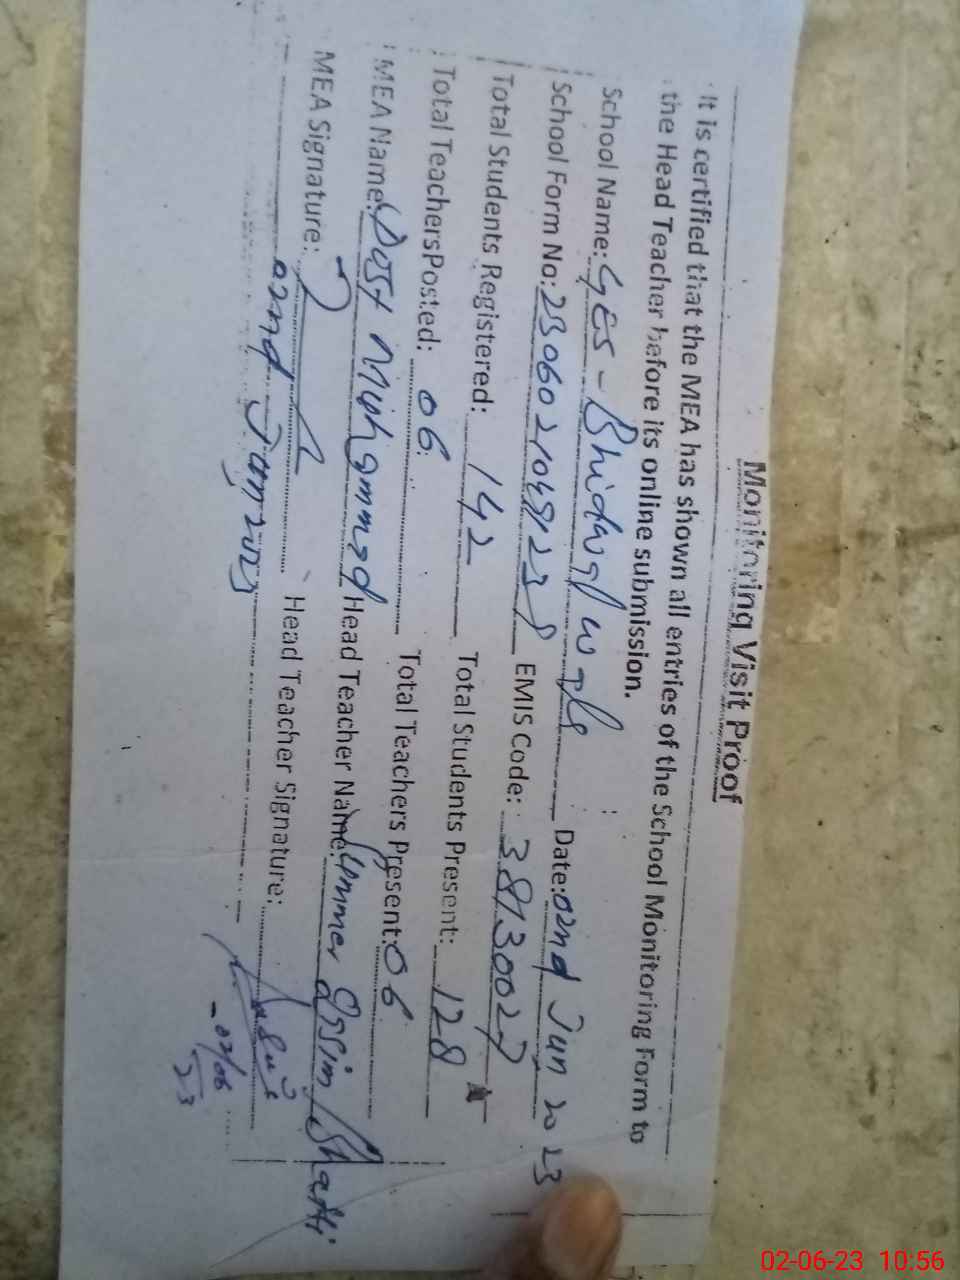 Monitoring Visit Proof
It is certified that the MEA has shown all entries of the School Monitoring Form to
the Head Teacher before its online submission.
School Name: GES - Bhidwal wala Date: 02nd Jun 2023
School Form No: EMIS Code: 38130027
Total Students Registered: 142 Total Students Present: 128
Total TeachersPosted: 06 Total Teachers Present: 06
MEA Name: Dost Muhammad Head Teacher Name: Ummer Assim Bhatti
MEA Signature: Head Teacher Signature:
02nd Jun 2023
02/06
23
02-06-23 10:56